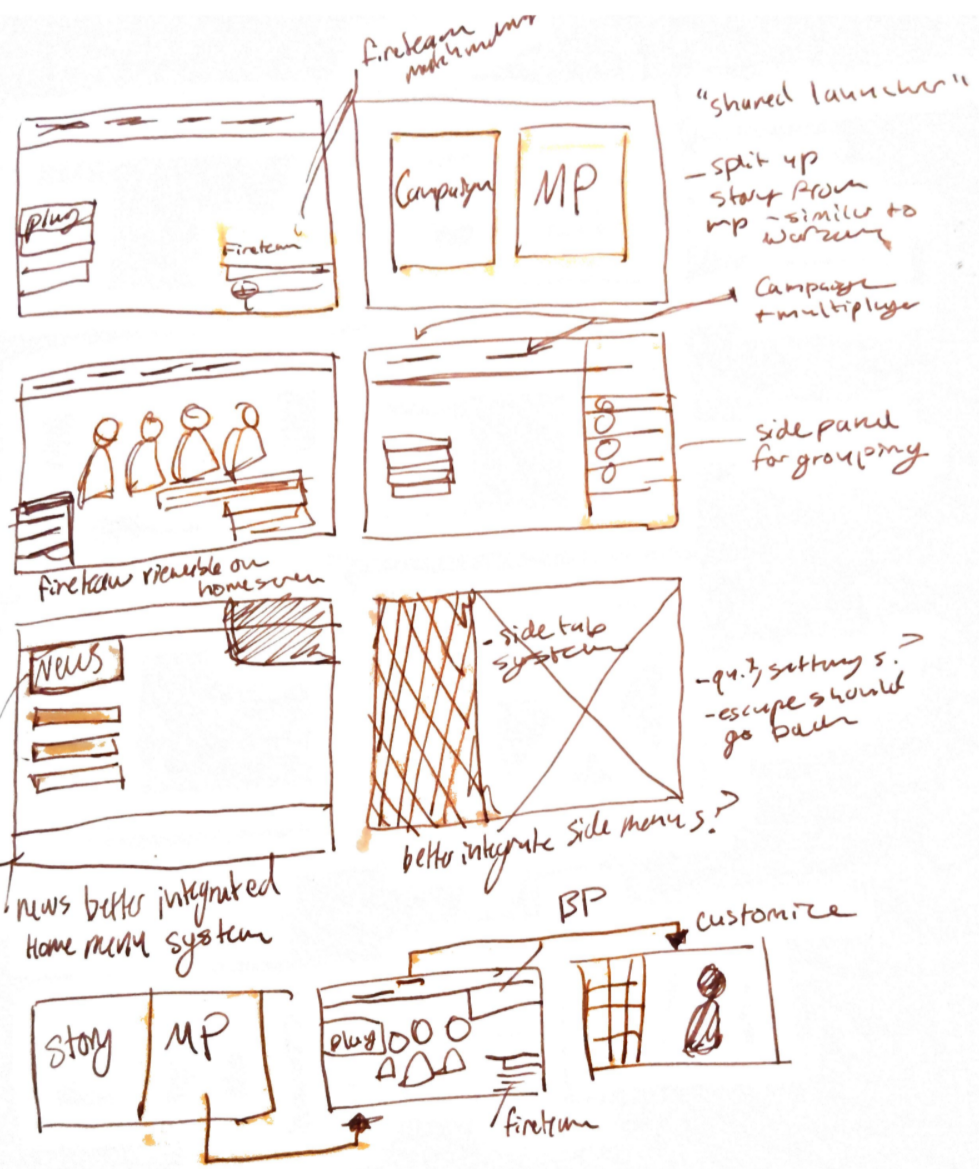 fireteam
"shared launcher"
Campaign
MP
- split up
story from
mp - similar to
warzone
play
Fireteam
Campaign
+ multiplayer
side panel
for grouping
fireteam viewable on
homescreen
NEWS
- side tab
system
settings?
- escape should
go back
better integrate side menus?
news better integrated
Home menu system
BP
customize
story
MP
play
fireteam